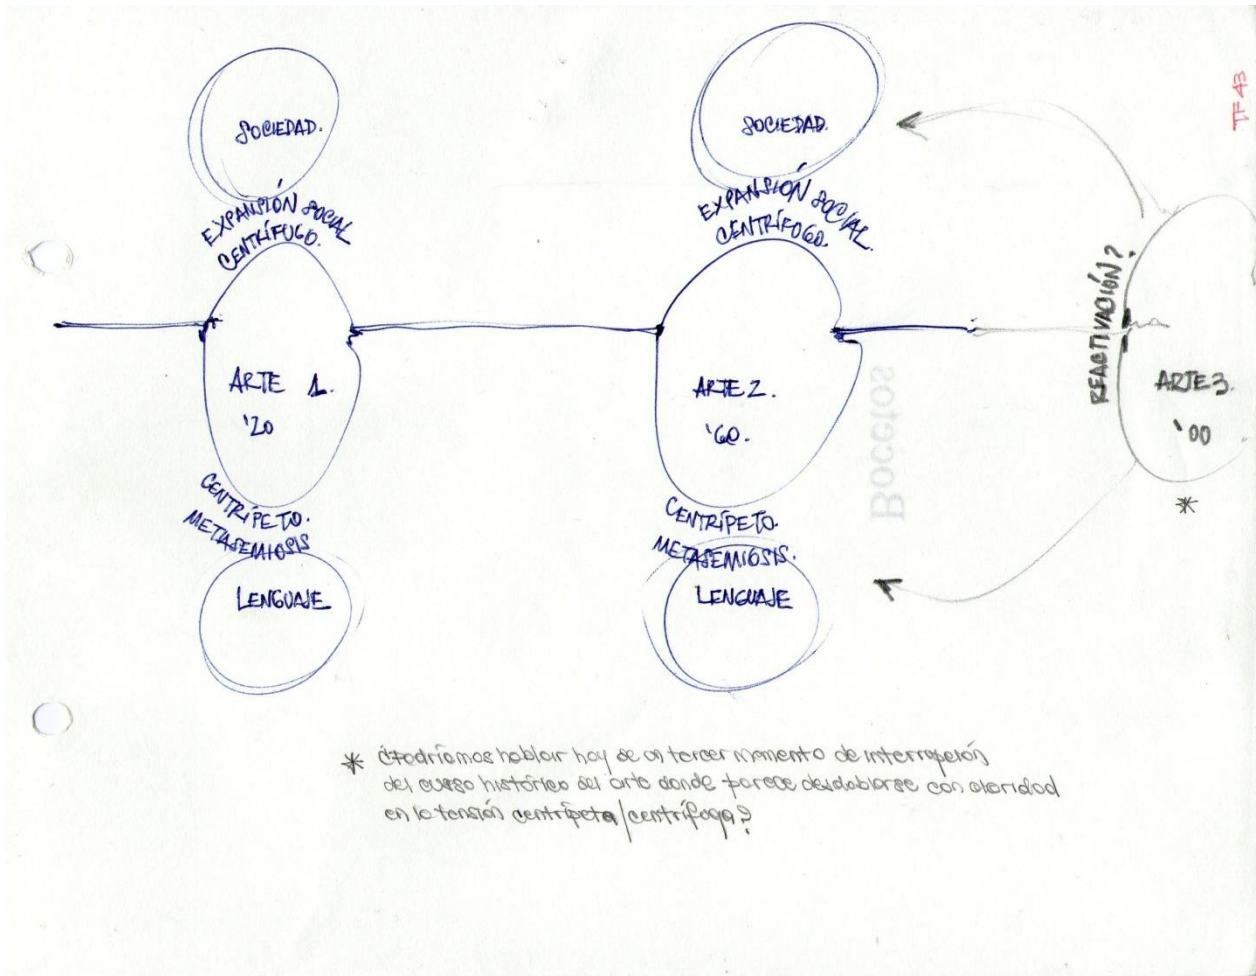 TF 43
SOCIEDAD.
EXPANSIÓN SOCIAL
CENTRÍFUGO.
ARTE 1.
'20
CENTRÍPETO.
METASEMIOSIS
LENGUAJE
SOCIEDAD.
EXPANSIÓN SOCIAL.
CENTRÍFOGO.
ARTE 2.
'60.
CENTRÍPETO.
METASEMIOSIS.
LENGUAJE
Bocetos
REACTIVACIÓN?
ARTE 3.
'00
*
* ¿Podríamos hablar hoy de un tercer momento de interrupción
del curso histórico del arte donde parece desdoblarse con claridad
en la tensión centrípeta/centrífoga?